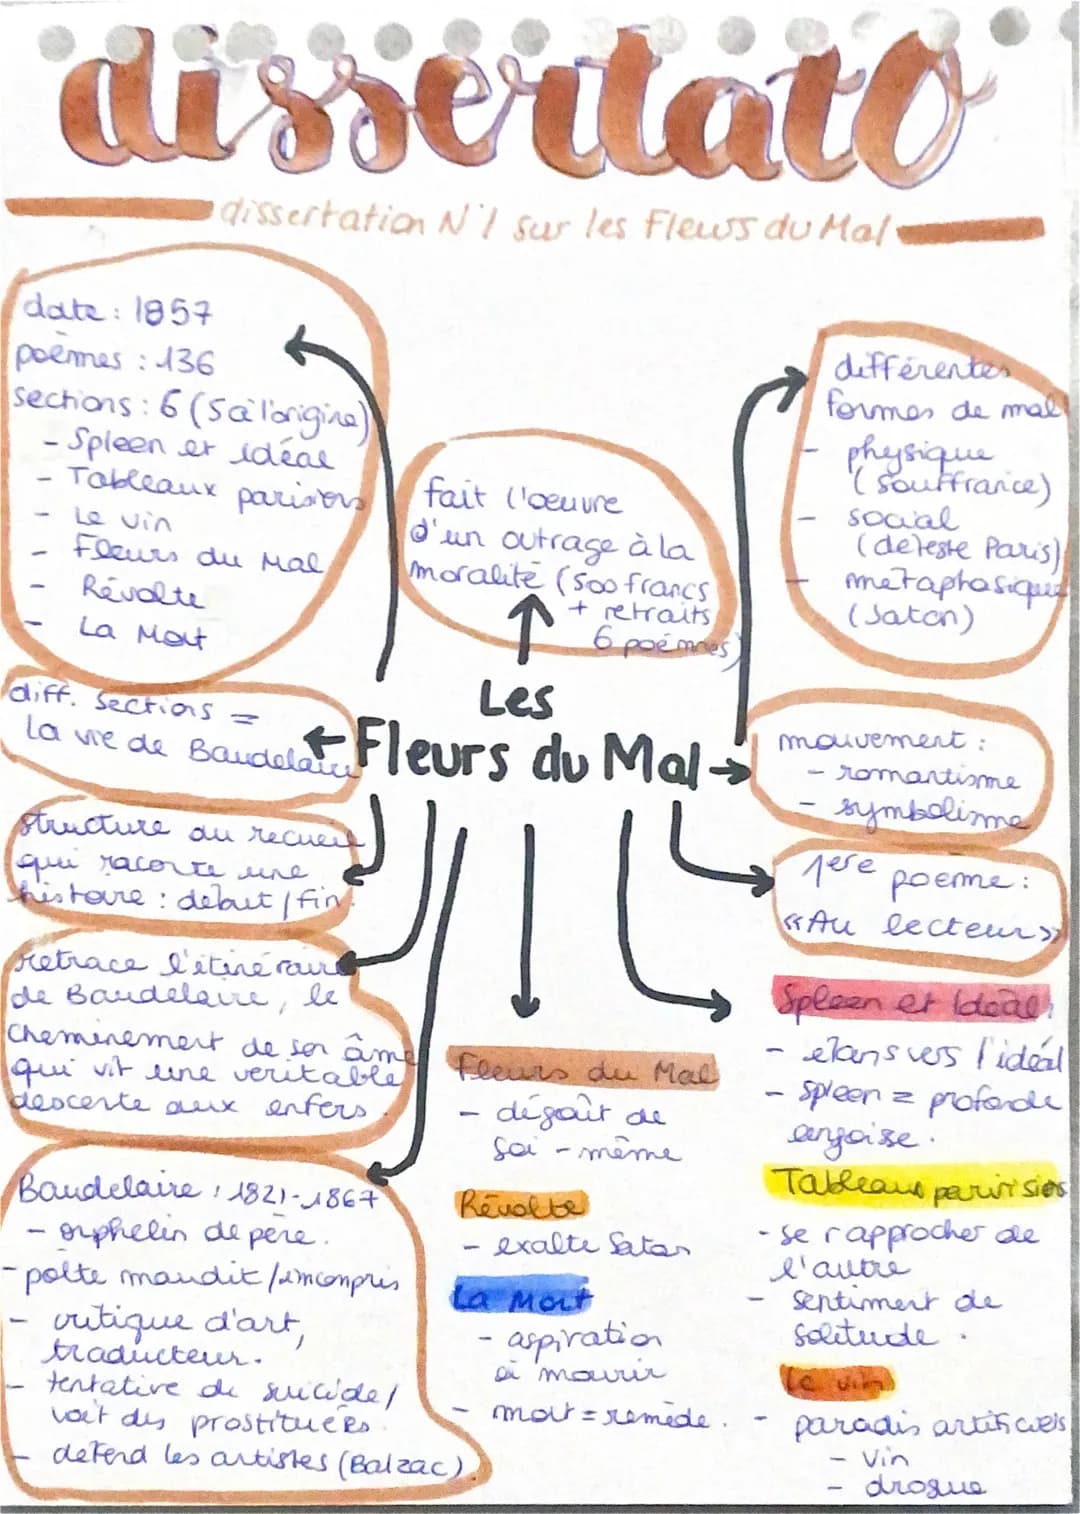 dissertatO
dissertation N°1 sur les Fleurs du Mal
date : 1857
poèmes : 136
sections : 6 (5 à l'origine)
- Spleen et idéal
- Tableaux parisiens
- Le vin
- Fleurs du Mal
- Révolte
- La Mort
fait l'oeuvre
d'un outrage à la
moralité (500 francs
+ retraits
6 poèmes)
différentes
formes de mal
- physique
(souffrance)
- social
(déteste Paris)
- métaphasique
(Satan)
Les
Fleurs du Mal
diff. sections =
la vie de Baudelaire
structure du recueil
qui raconte une
histoire : début / fin.
retrace l'itinéraire
de Baudelaire, le
cheminement de son âme
qui vit une véritable
descente aux enfers.
Baudelaire : 1821-1867
- orphelin de père.
- poète maudit / incompris
- critique d'art,
traducteur.
- tentative de suicide /
voit des prostituées.
- défend les artistes (Balzac)
mouvement :
- romantisme
- symbolisme
1ere poeme :
«Au lecteur»
Fleurs du Mal
- dégoût de
soi - même
Révolte
- exalte Satan
La Mort
- aspiration
à mourir
- mort = remède.
Spleen et Idéal
- élans vers l'idéal
- spleen = profonde
angoisse.
Tableaux parisiens
- se rapprocher de
l'autre
- sentiment de
solitude.
Le vin
- paradis artificiels
- vin
- drogue